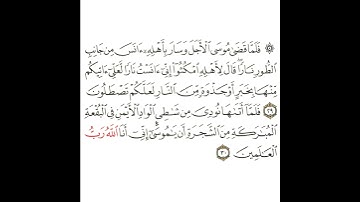 ۞ فَلَمَّا قَضَىٰ مُوسَى ٱلْأَجَلَ وَسَارَ بِأَهْلِهِۦٓ ءَانَسَ مِن جَانِبِ
ٱلطُّورِ نَارًا قَالَ لِأَهْلِهِ ٱمْكُثُوٓا۟ إِنِّىٓ ءَانَسْتُ نَارًا لَّعَلِّىٓ ءَاتِيكُم
مِّنْهَا بِخَبَرٍ أَوْ جَذْوَةٍ مِّنَ ٱلنَّارِ لَعَلَّكُمْ تَصْطَلُونَ
٢٩ فَلَمَّآ أَتَىٰهَا نُودِىَ مِن شَٰطِئِ ٱلْوَادِ ٱلْأَيْمَنِ فِى ٱلْبُقْعَةِ
ٱلْمُبَٰرَكَةِ مِنَ ٱلشَّجَرَةِ أَن يَٰمُوسَىٰٓ إِنِّىٓ أَنَا ٱللَّهُ رَبُّ
ٱلْعَٰلَمِينَ ٣٠